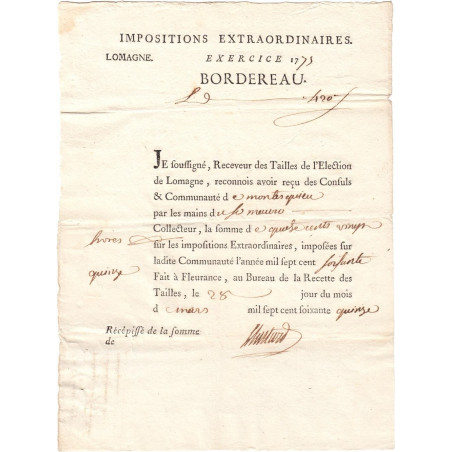 IMPOSITIONS EXTRAORDINAIRES.
LOMAGNE. EXERCICE 1775
BORDEREAU.
JE souſſigné, Receveur des Tailles de l'Election
de Lomagne, reconnois avoir reçu des Conſuls
& Communauté de montesquieu
par les mains du
Collecteur, la ſomme de quatre cents vingt
livres ſur les impoſitions Extraordinaires, impoſées ſur
ladite Communauté l'année mil ſept cent ſoixante
quinze
Fait à Fleurance, au Bureau de la Recette des
Tailles, le 28 jour du mois
de mars mil ſept cent ſoixante quinze
Récépiſſé de la ſomme
de